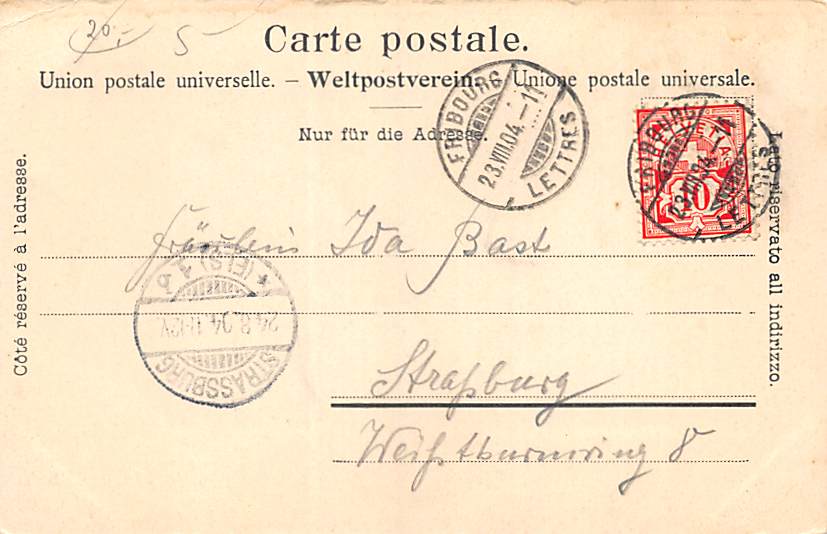 20.- 5-
Carte postale.
Union postale universelle. – Weltpostverein. – Unione postale universale.
Nur für die Adresse.
Côté réservé à l'adresse.
Lato riservato all indirizzo.
FRIBOURG
23.VIII.04.-11
LETTRES
FRIBOURG
23.VIII.04.-11
LETTRES
HELVETIA
10
Fräulein Ida Bast
STRASSBURG
24.8.04.
(ELS)
Straßburg
Weißthurmring 8